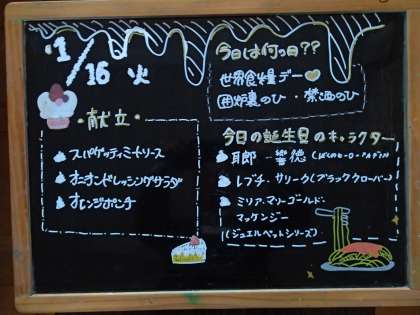 1/16 火
・献立・
スパゲッティミートソース
オニオンドレッシングサラダ
オレンジポンチ
今日は何の日??
世界食糧デー
囲炉裏のひ・禁酒のひ
今日の誕生日のキャラクター
耳郎 響徳(ぼくのヒーローアカデミア)
レブチ・サリーク(ブラッククローバー)
ミリア・マリーゴールド・
マッケンジー
(ジュエルペットシリーズ)